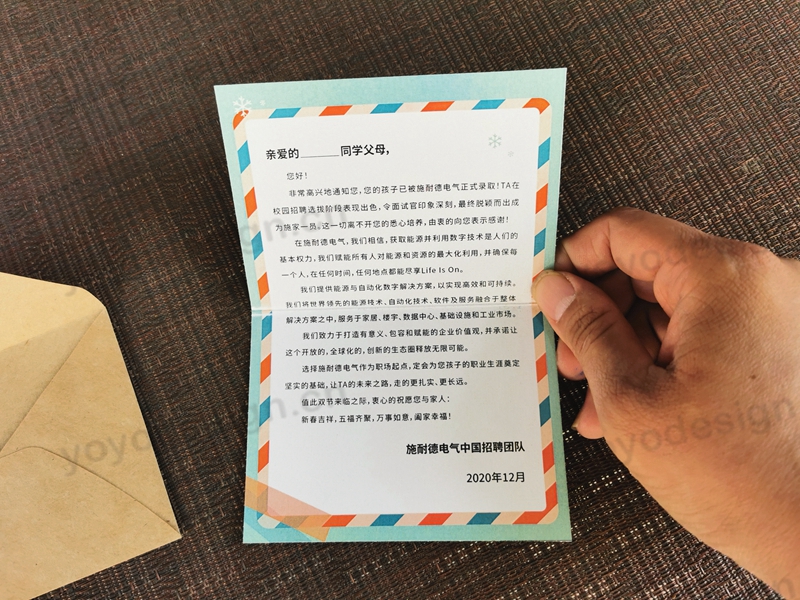 亲爱的______同学父母，
您好！
非常高兴地通知您，您的孩子已被施耐德电气正式录取！TA在
校园招聘选拔阶段表现出色，令面试官印象深刻，最终脱颖而出成
为施家一员。这一切离不开您的悉心培养，由衷的向您表示感谢！
在施耐德电气，我们相信，获取能源并利用数字技术是人们的
基本权力，我们赋能所有人对能源和资源的最大化利用，并确保每
一个人，在任何时间，任何地点都能尽享Life Is On。
我们提供能源与自动化数字解决方案，以实现高效和可持续。
我们将世界领先的能源技术、自动化技术、软件及服务融合于整体
解决方案之中，服务于家居、楼宇、数据中心、基础设施和工业市场。
我们致力于打造有意义、包容和赋能的企业价值观，并承诺让
这个开放的，全球化的，创新的生态圈释放无限可能。
选择施耐德电气作为职场起点，定会为您孩子的职业生涯奠定
坚实的基础，让TA的未来之路，走的更扎实、更长远。
值此双节来临之际，衷心的祝愿您与家人：
新春吉祥，五福齐聚，万事如意，阖家幸福！
施耐德电气中国招聘团队
2020年12月
yoyodesign.cn